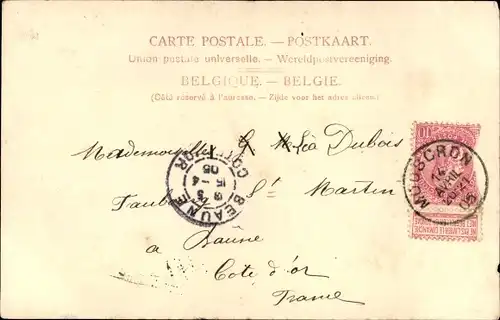 CARTE POSTALE. — POSTKAART.
Union postale universelle. — Wereldpostvereeniging.
BELGIQUE. — BELGIE.
(Côté réservé à l'adresse. — Zijde voor het adres alleen.)
Mademoiselle Léa Dubois
Faub St Martin
a Baune
Cote d'or
France
BEAUNE
COTE-D'OR
MOUSCRON
14
AVRIL
10
NE PAS LIVRER LE DIMANCHE